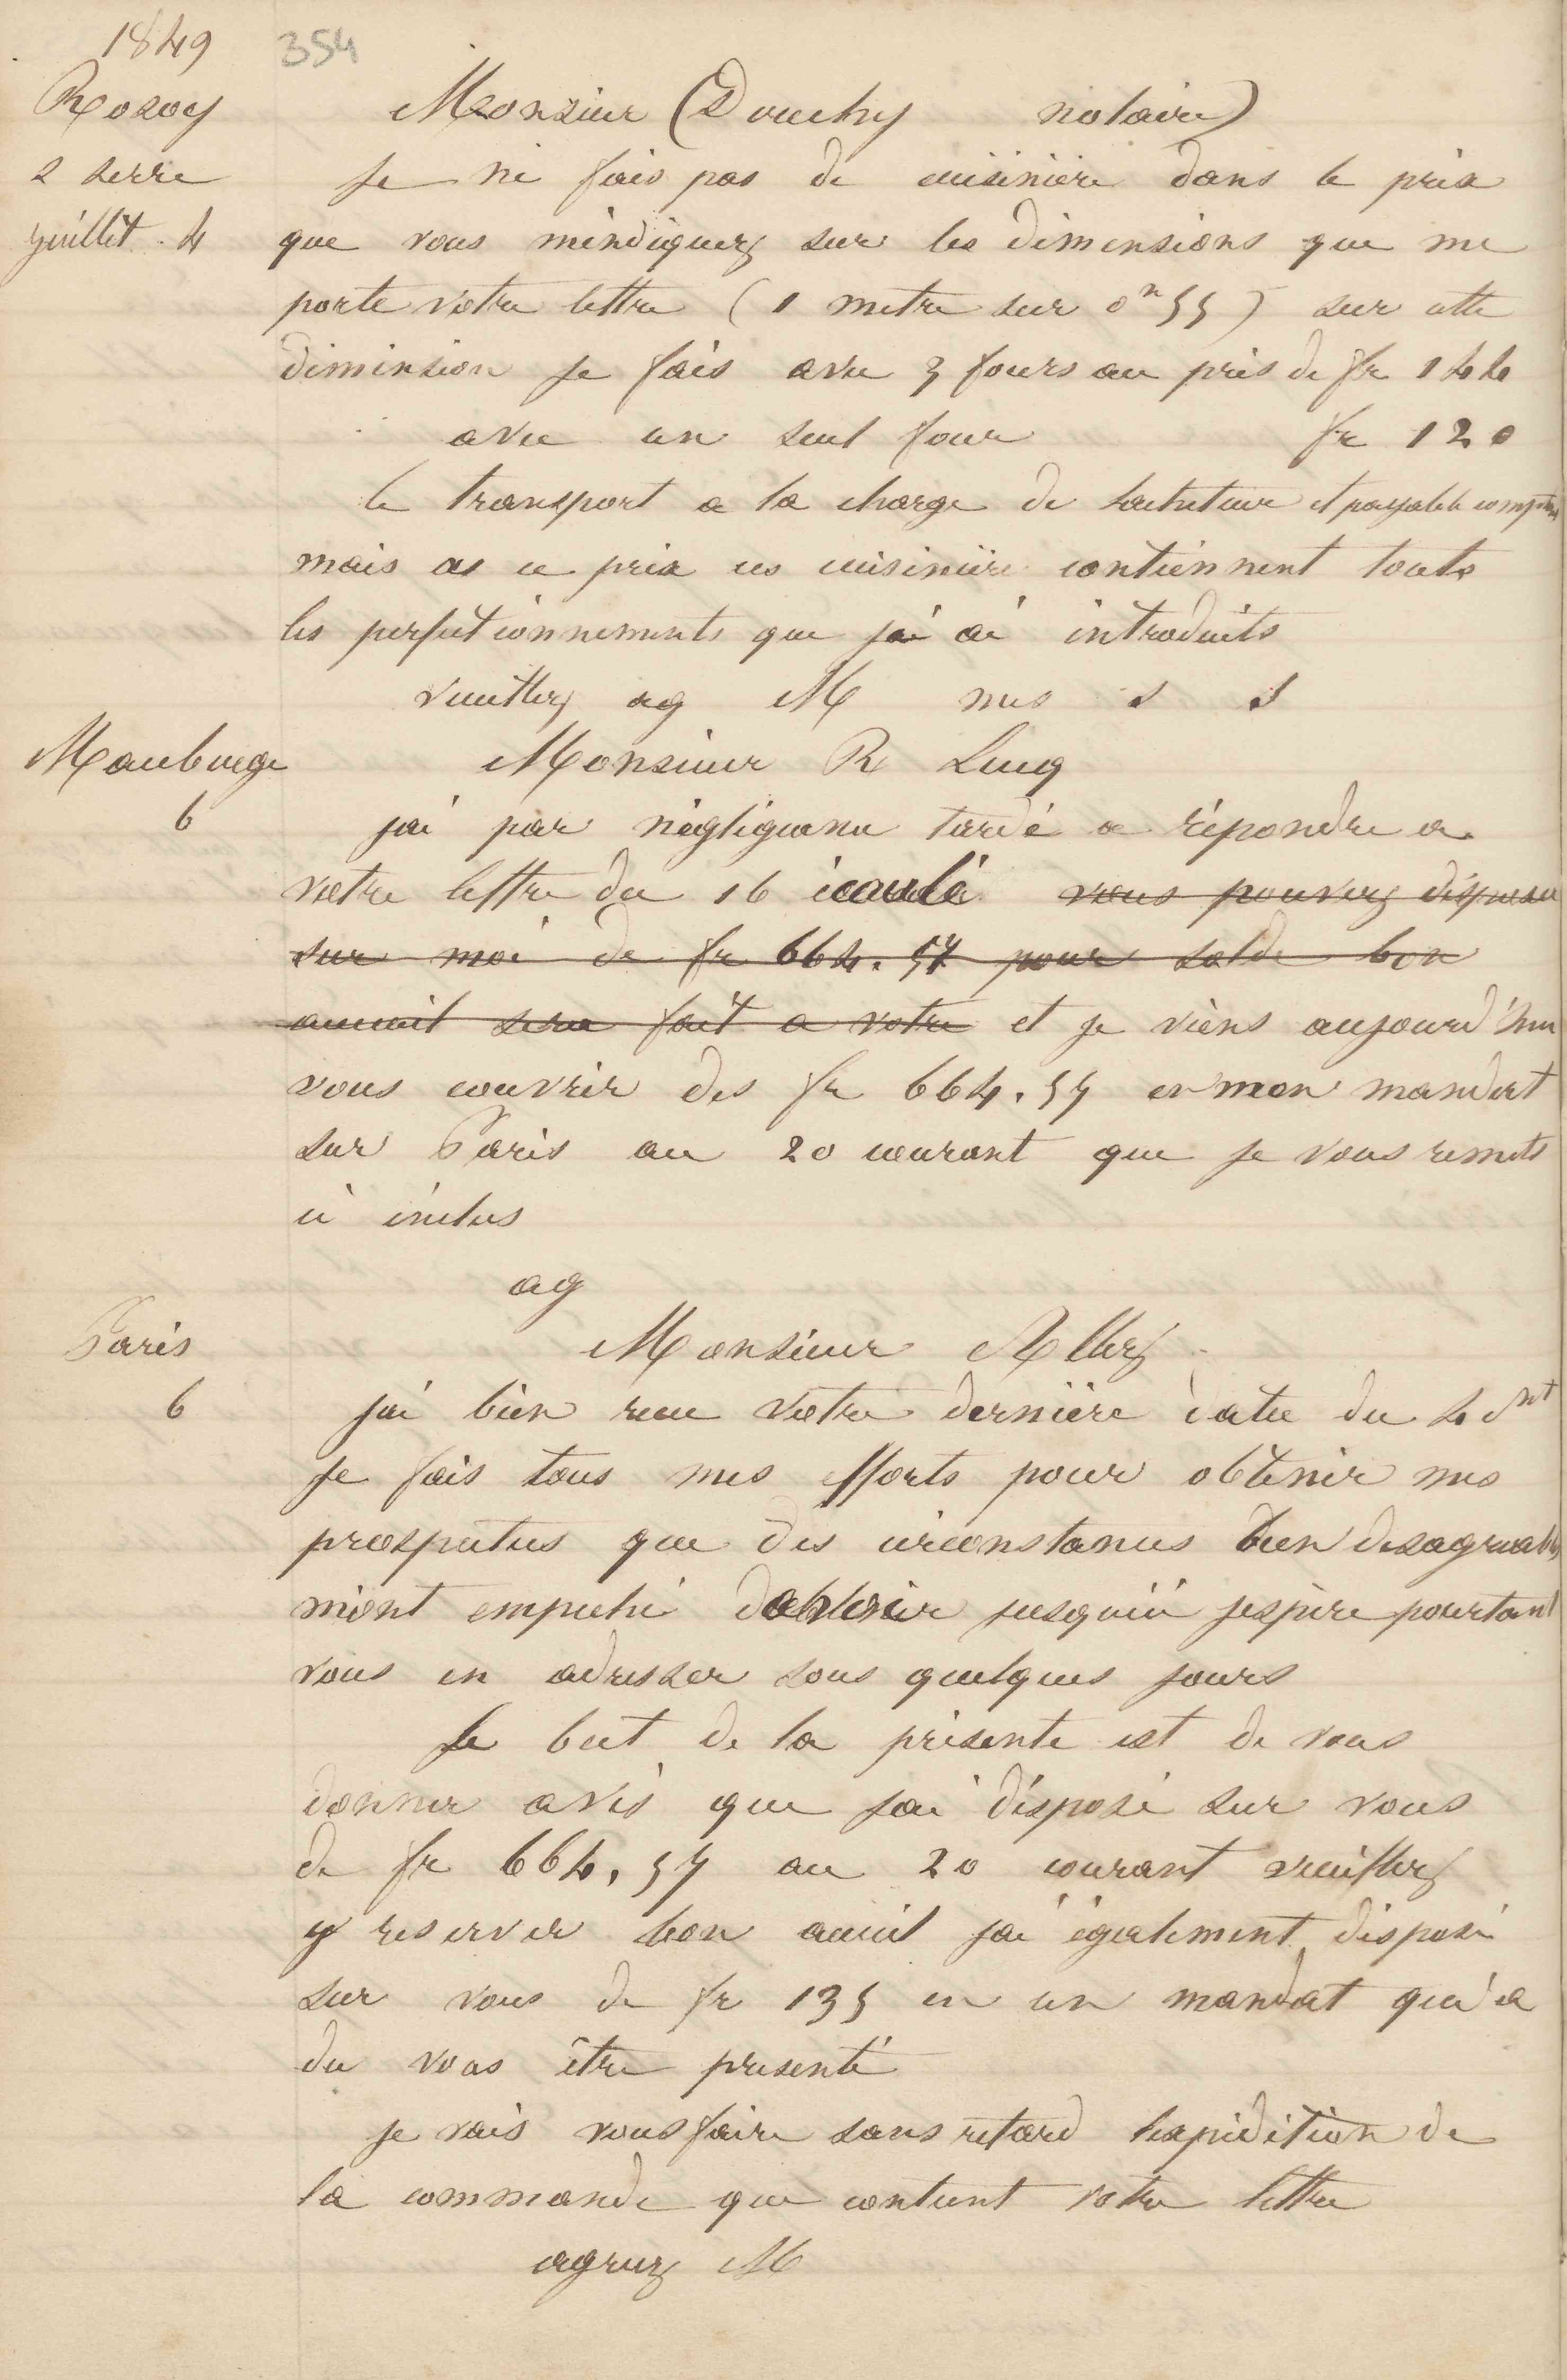 1849 354
Rozoy Monsieur (Douchy notaire)
s serre je ne fais pas de cuisinière dans le prix
juillet . 4 que vous m'indiquez sur les dimensions que me
porte votre lettre ( 1 metre sur 0m 55 ) sur cette
dimension je fais avec 3 fours au prix de fr 144
avec un seul four fr 120
le transport a la charge de lacheteur et payable comptant
mais as ce prix ces cuisinière contiennent touts
les perfectionnements que jai ai introduits
veuillez ag M mes s s
Maubeuge Monsieur R Lucq
6 jai par négligeance tardé a répondre a
votre lettre du 16 écoulé vous pouvez disposer
sur moi de fr 664.57 pour solde bon
accueil sera fait a votre et je viens aujourd'hui
vous couvrir des fr 664.57 en mon mandat
sur Paris au 20 courant que je vous remets
ci inclus
ag
Paris Monsieur Allez
6 jai bien recu votre dernière datée du 4 ct
je fais tous mes efforts pour obtenir mes
prospectus que des circonstances bien desagreables
m'ont empeché dobtenir jusquici jespère pourtant
vous en adresser sous quelques jours
Le but de la présente est de vous
donner avis que jai disposé sur vous
de fr 664,57 au 20 courant veuillez
y reserver bon acceuil jai également disposé
sur vous de fr 135 en un mandat qui a
du vous être presenté
je vais vous faire sans retard lexpédition de
la commande que contient votre lettre
agreez M